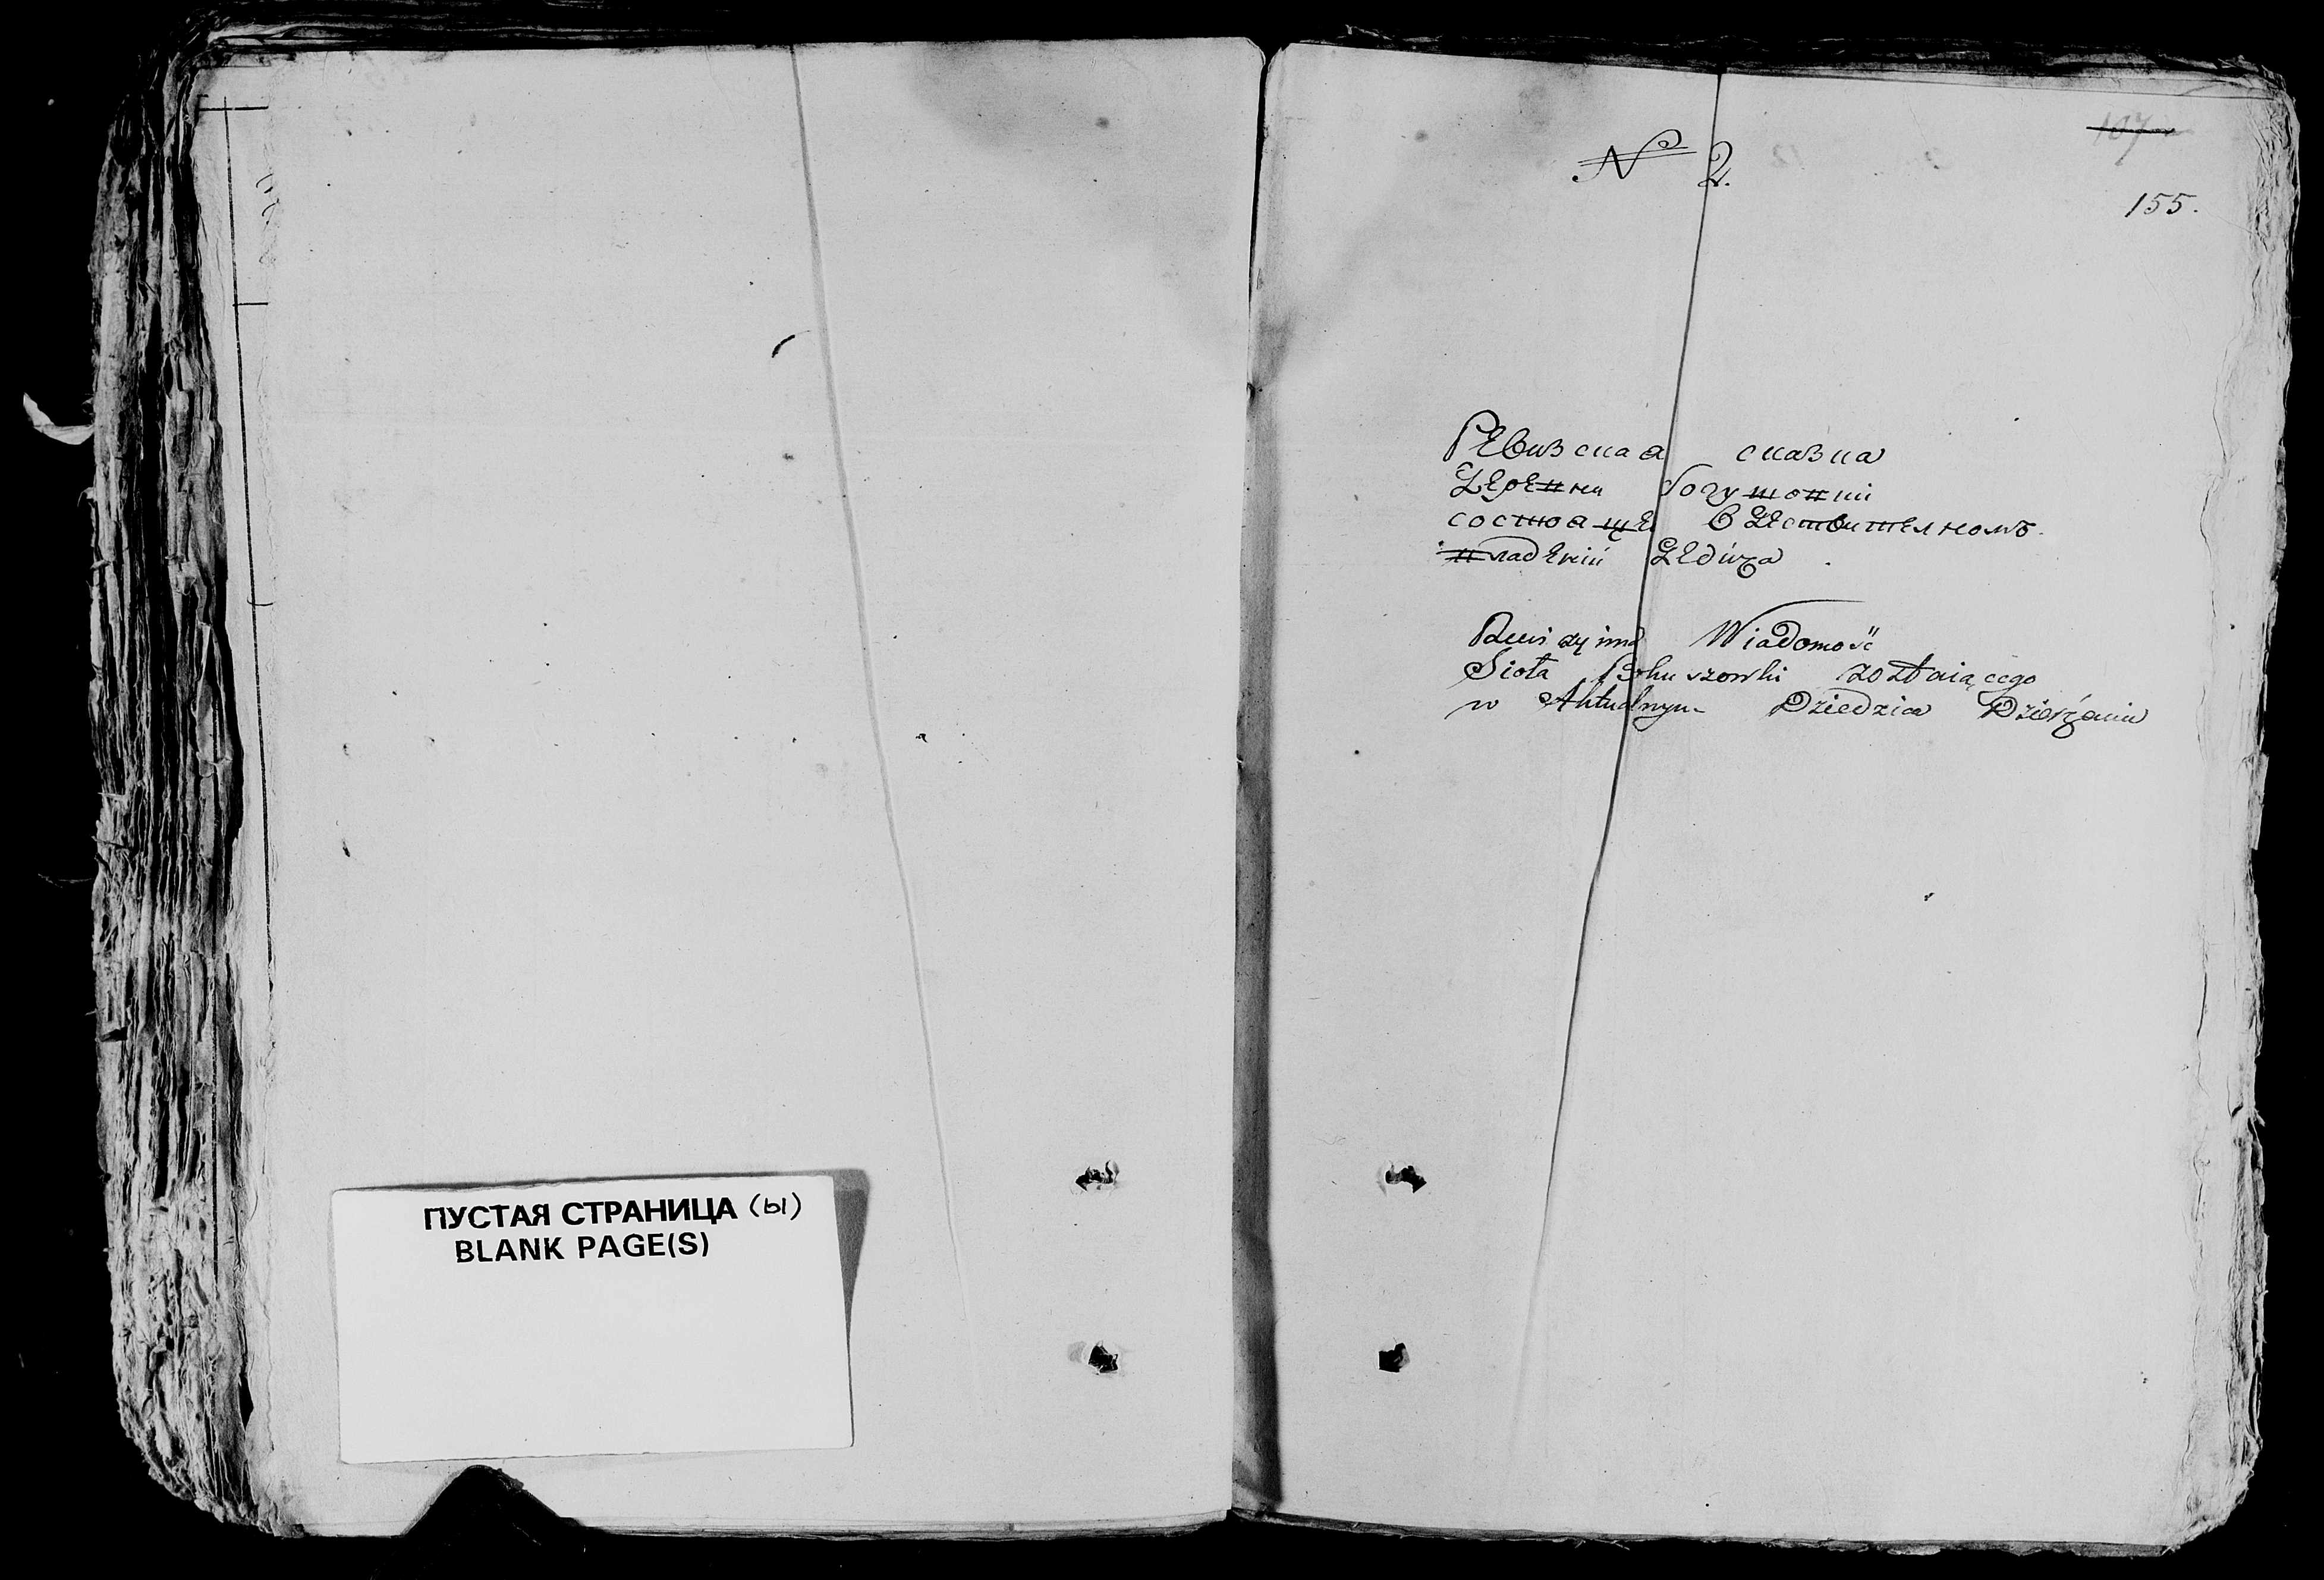 ПУСТАЯ СТРАНИЦА (ы)
BLANK PAGE(S)
№ 2.
107
155.
Ревизская сказка
Деревни
состоаще в Дествителномъ
владении Дедица
Rewizyina Wiadomość
Sioła Bohuszowki zostaiącego
w Aktualnym Dziedzica Dzierżeniu